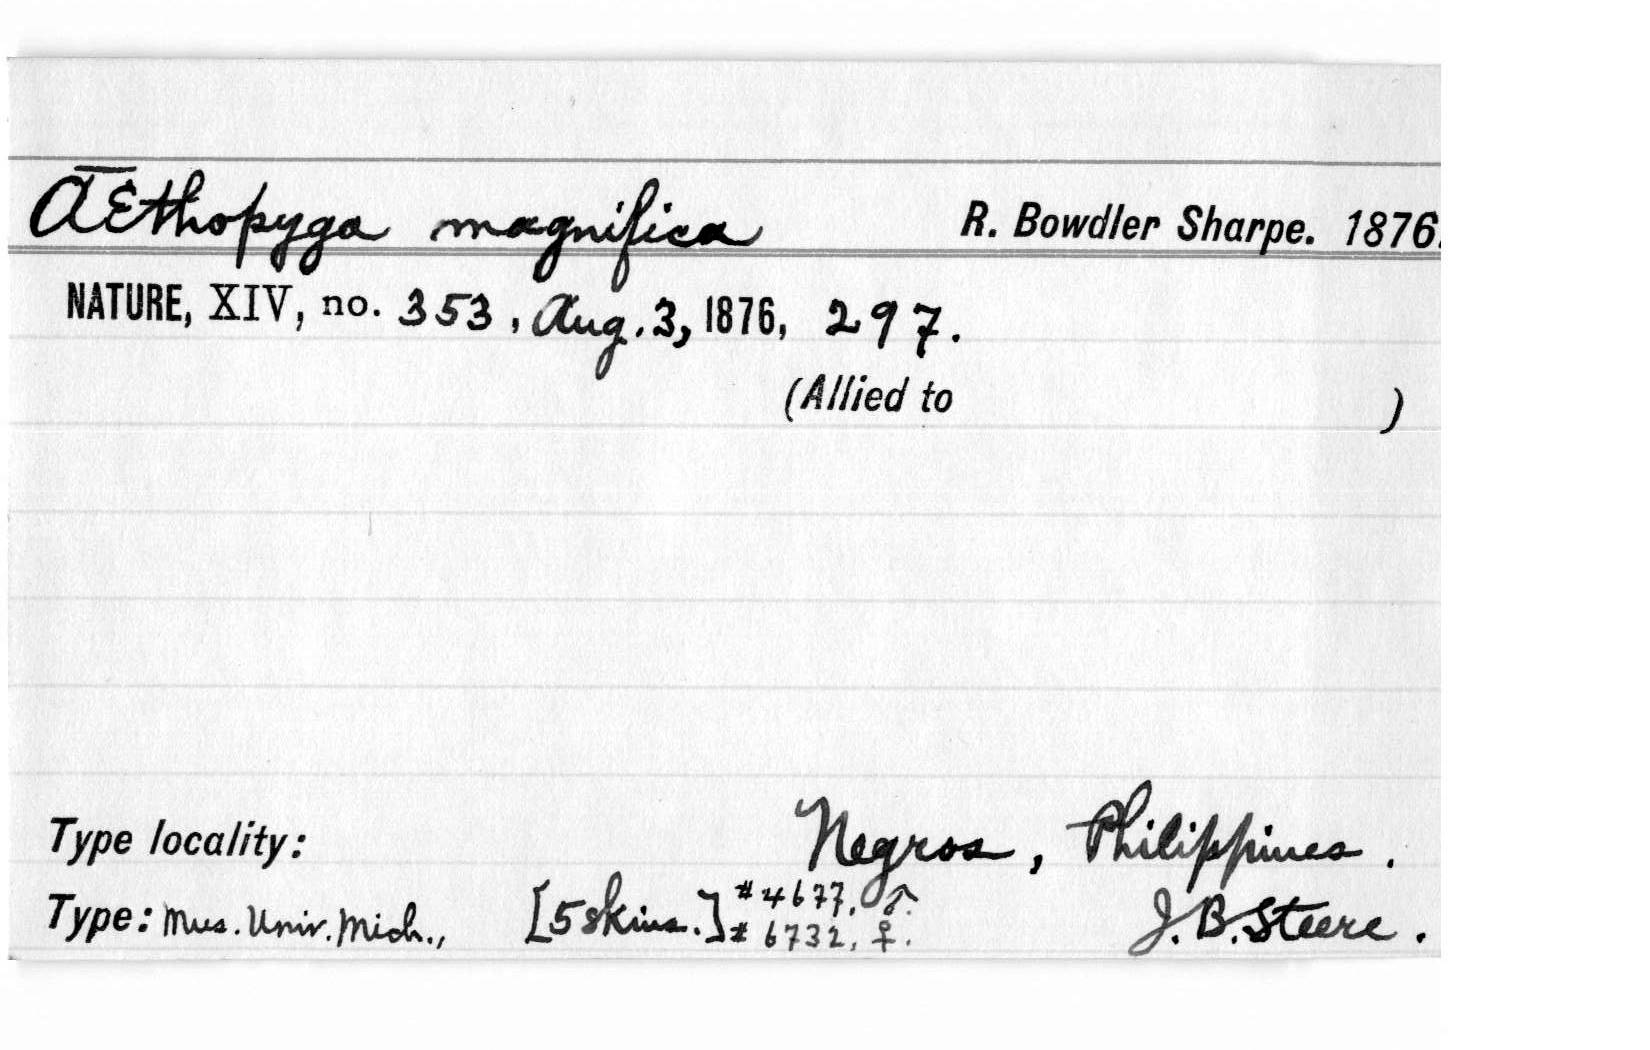 Æthopyga magnifica R. Bowdler Sharpe. 1876.
NATURE, XIV, no. 353, Aug. 3, 1876, 297.
(Allied to )
Type locality: Negros, Philippines.
Type: Mus. Univ. Mich., [5 skins.] #4677, ♂. J. B. Steere.
# 6732, ♀.